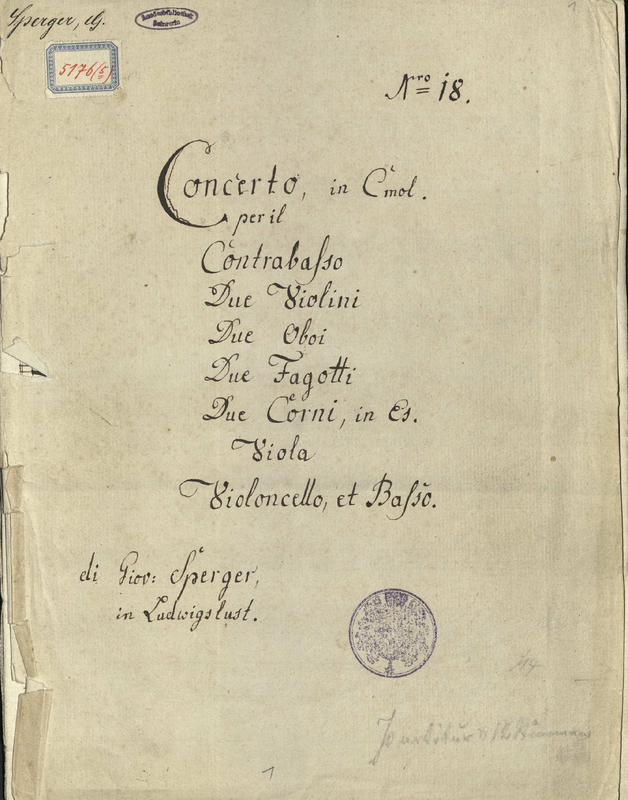 Sperger, G.
Landesbibliothek
Schwerin
5176(5)
1
Nro 18.
Concerto, in Cmol.
per il
Contrabaſso
Due Violini
Due Oboi
Due Fagotti
Due Corni, in Es.
Viola
Violoncello, et Baſso.
di Giov: Sperger,
in Ludwigslust.
Partitur
1